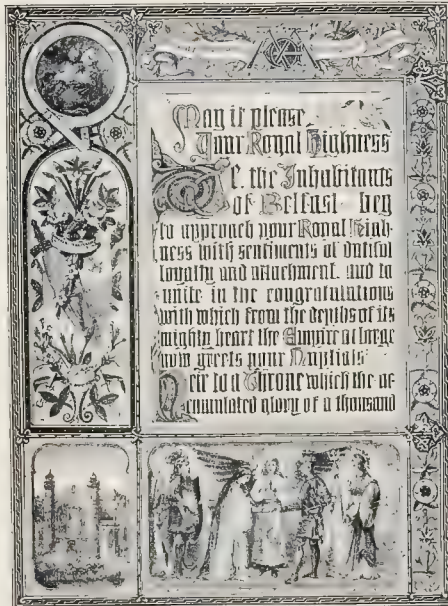 May it please
Your Royal Highness
We the Inhabitants
of Belfast beg
to approach your Royal High-
ness with sentiments of dutiful
loyalty and attachment and to
unite in the congratulations
with which from the depths of its
mighty heart the Empire at large
now greets your Nuptials
Heir to a Throne which the ac-
cumulated glory of a thousand